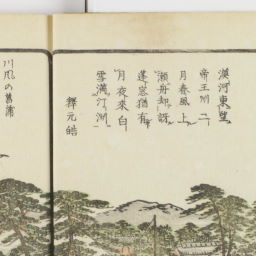 漠河東望
帝王州二
月春風上
瀬舟却訝
蓬窓猶有
月夜來白
雪満汀洲
釋元皓
川風の菖蒲